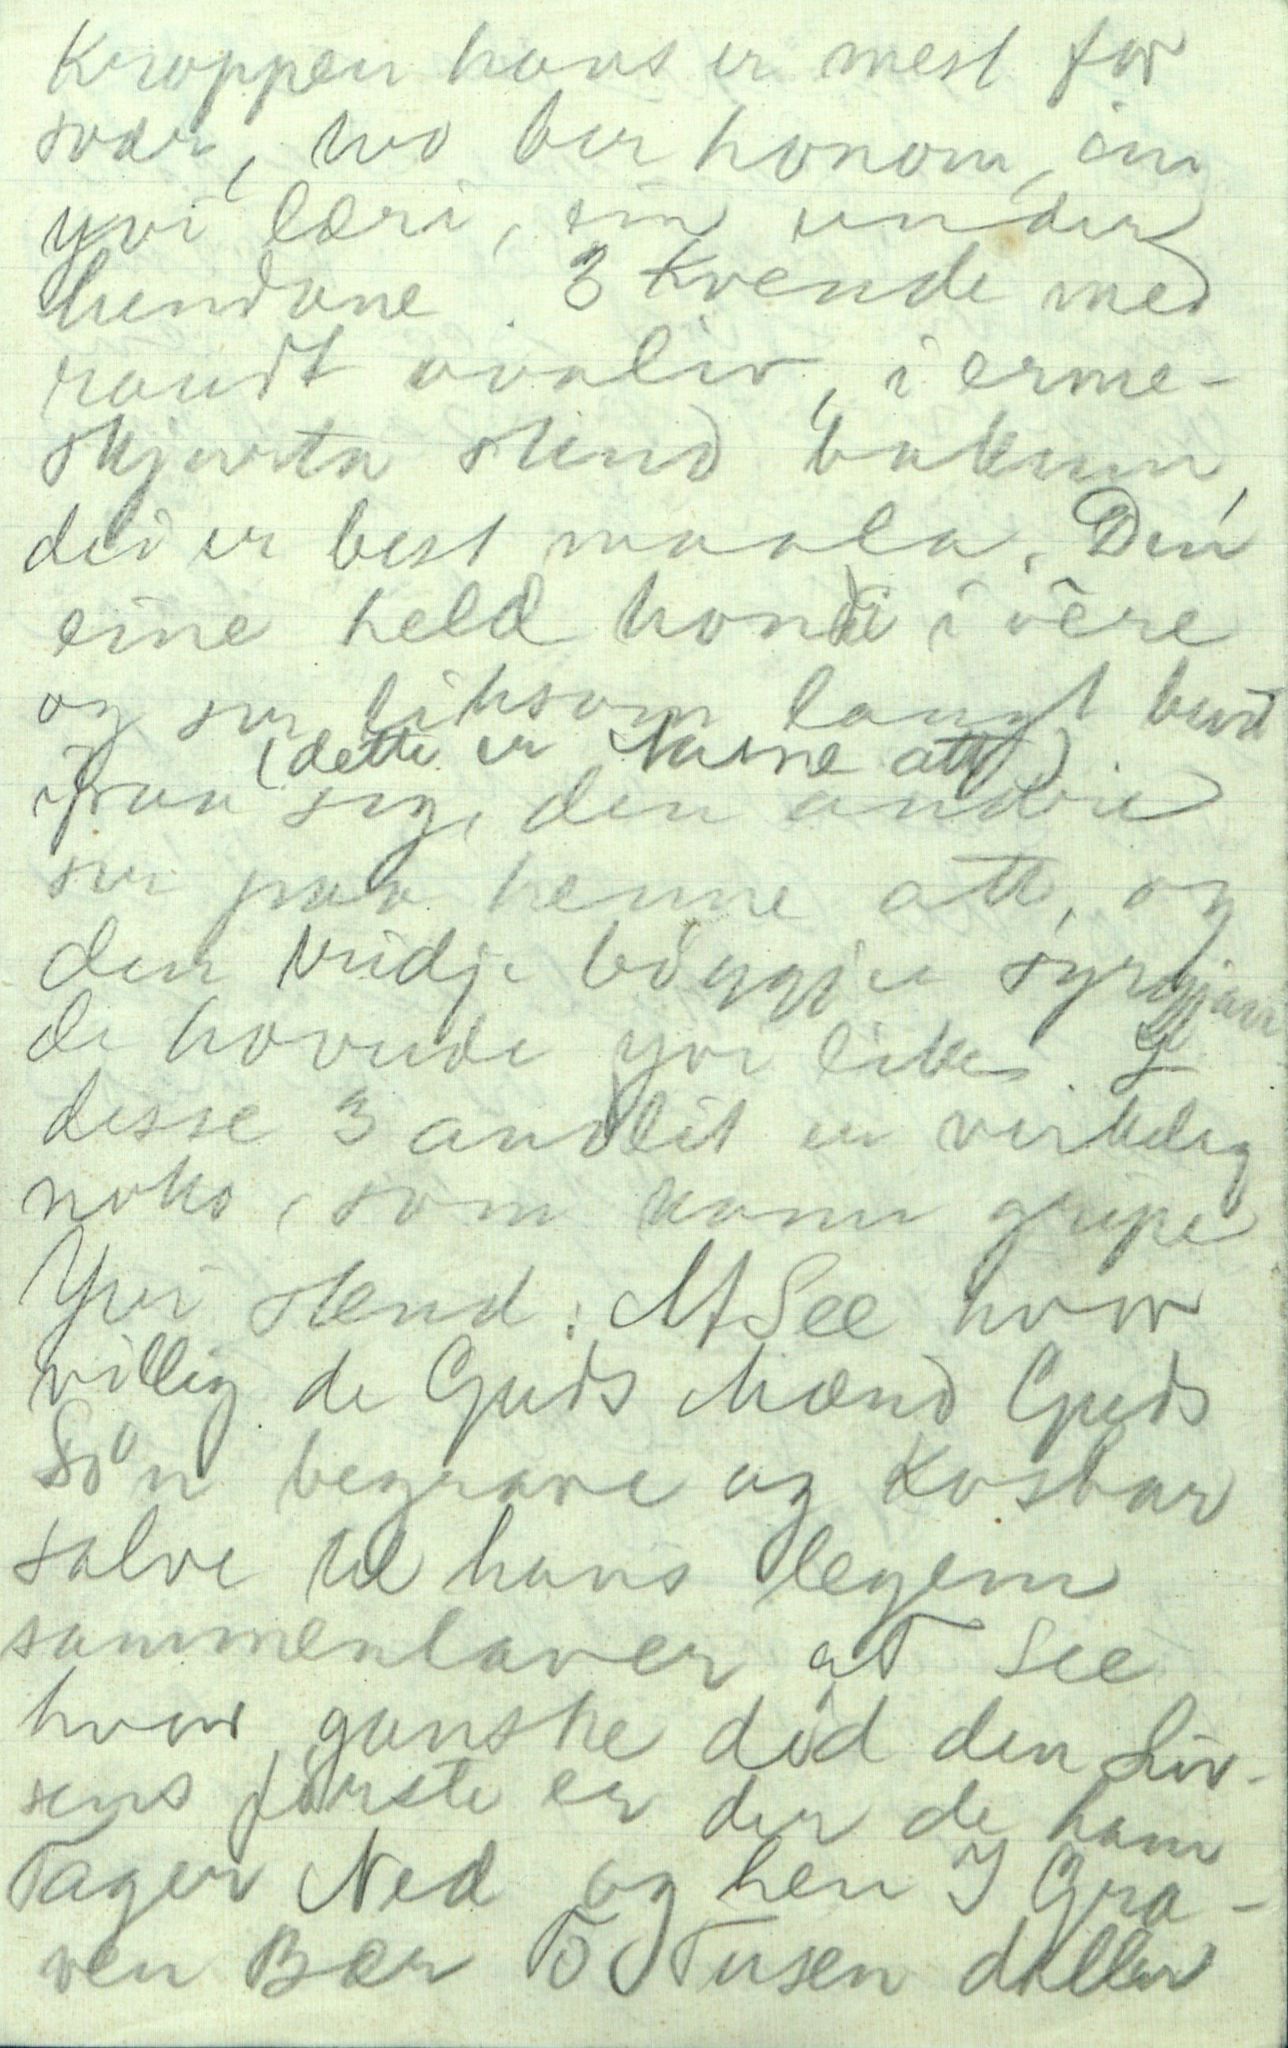 Kroppen hans er mest for
svær, two ber honom, ein
yvi læri, ein under
hendane. 3 Kvende med
raudt ovaliv, i erme-
skjorta stend bakum,
dei er best maala. Den
eine held hondi i være
og ser liksom langt burt
(dette er Kanne att)
ifraa seg, den andre
ser paa henne att, og
den tridje böygjer syrgjan-
de hovude yvi liket. I
disse 3 andlit er verkeleg
noko, som kann gripe
Yvi stend: At See hvor
villig de Guds Mænd Guds
Sön begrave og Kostbar
salve til hans legem
sammenlaver at See
hvor ganske död den Liv-
sens förste er der de ham
Tager Ned og hen I Gra-
ven Bær To Tusen daller